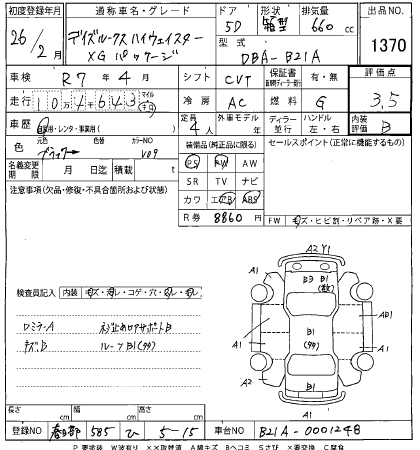 初度登録年月 通称車名・グレード ドア 形状 排気量 出品NO.
26年 2月 デイズルークス ハイウェイスター XG パッケージ 5D 箱型 660cc 1370
型式 DBA-B21A
車検 R7年4月 シフト CVT 保証書 有・無 評価点
走行 10万4643 冷房 AC 燃料 G 3.5
車歴 自家用・レンタ・事業用( ) 定員 4人 外車モデル 年 ディーラー 並行 ハンドル 左・右 内装評価 B
色 元色 ブラック 色替 カラーNO V09
装備品(純正品に限る) セールスポイント(正常に機能するもの)
名義変更期限 月 日迄 積載 t
PS PW AW
注意事項(欠品・修復・不具合箇所および状態)
SR TV ナビ
カワ エアB ABS
R券 8860円
FW キズ・ヒビ割・リペア跡・X要
A2 Y1
検査員記入 内装 キズ・汚レ・コゲ・穴・スレ・モレ
A1 B3 B1 A1
ロミラーA ネジ止めロアサポートB
キズ,B ルーフB1(タタ)
B1 (タタ) AB1
A1 A1
A2 B1 A1
A3 U1
長さ cm 幅 cm 高さ cm
登録NO 春日部 585 ひ 5-15 車台NO B21A-0001248
P要塗装 W波有り ××取替済 A線キズ Bヘコミ Sさび ×要交換 C腐食